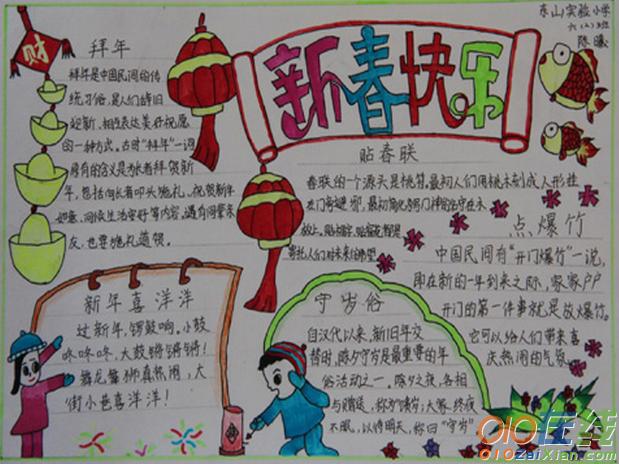 东山实验小学
六（2）班
陈曦
财
新春快乐
拜年
拜年是中国民间的传
统习俗，是人们辞旧
迎新，相互表达美好祝愿
的一种方式。古时"拜年"一词
原有的含义是为长者拜贺新
年，包括向长者叩头施礼，祝贺新年
如意，问候生活安好等内容，遇有同辈亲
友，也要施礼道贺。
贴春联
春联的一个源头是桃符。最初人们用桃木刻成人形挂
在门旁避邪，
寄托人们对未来的希望
点爆竹
中国民间有"开门爆竹"一说，
即在新的一年到来之际，家家户户
开门的第一件事就是放爆竹。
它可以给人们带来喜
庆热闹的气氛
新年喜洋洋
过新年，锣鼓响。小鼓
咚咚咚，大鼓锵锵锵！
舞龙舞狮真热闹，大
街小巷喜洋洋！
守岁俗
自汉代以来，新旧年交
替时，除夕守岁是最重要的年
俗活动之一。除夕之夜，各相
与赠送，称为"馈岁"；大家终夜
不眠，以待明天，称曰"守岁"
010在线
010zaixian.com